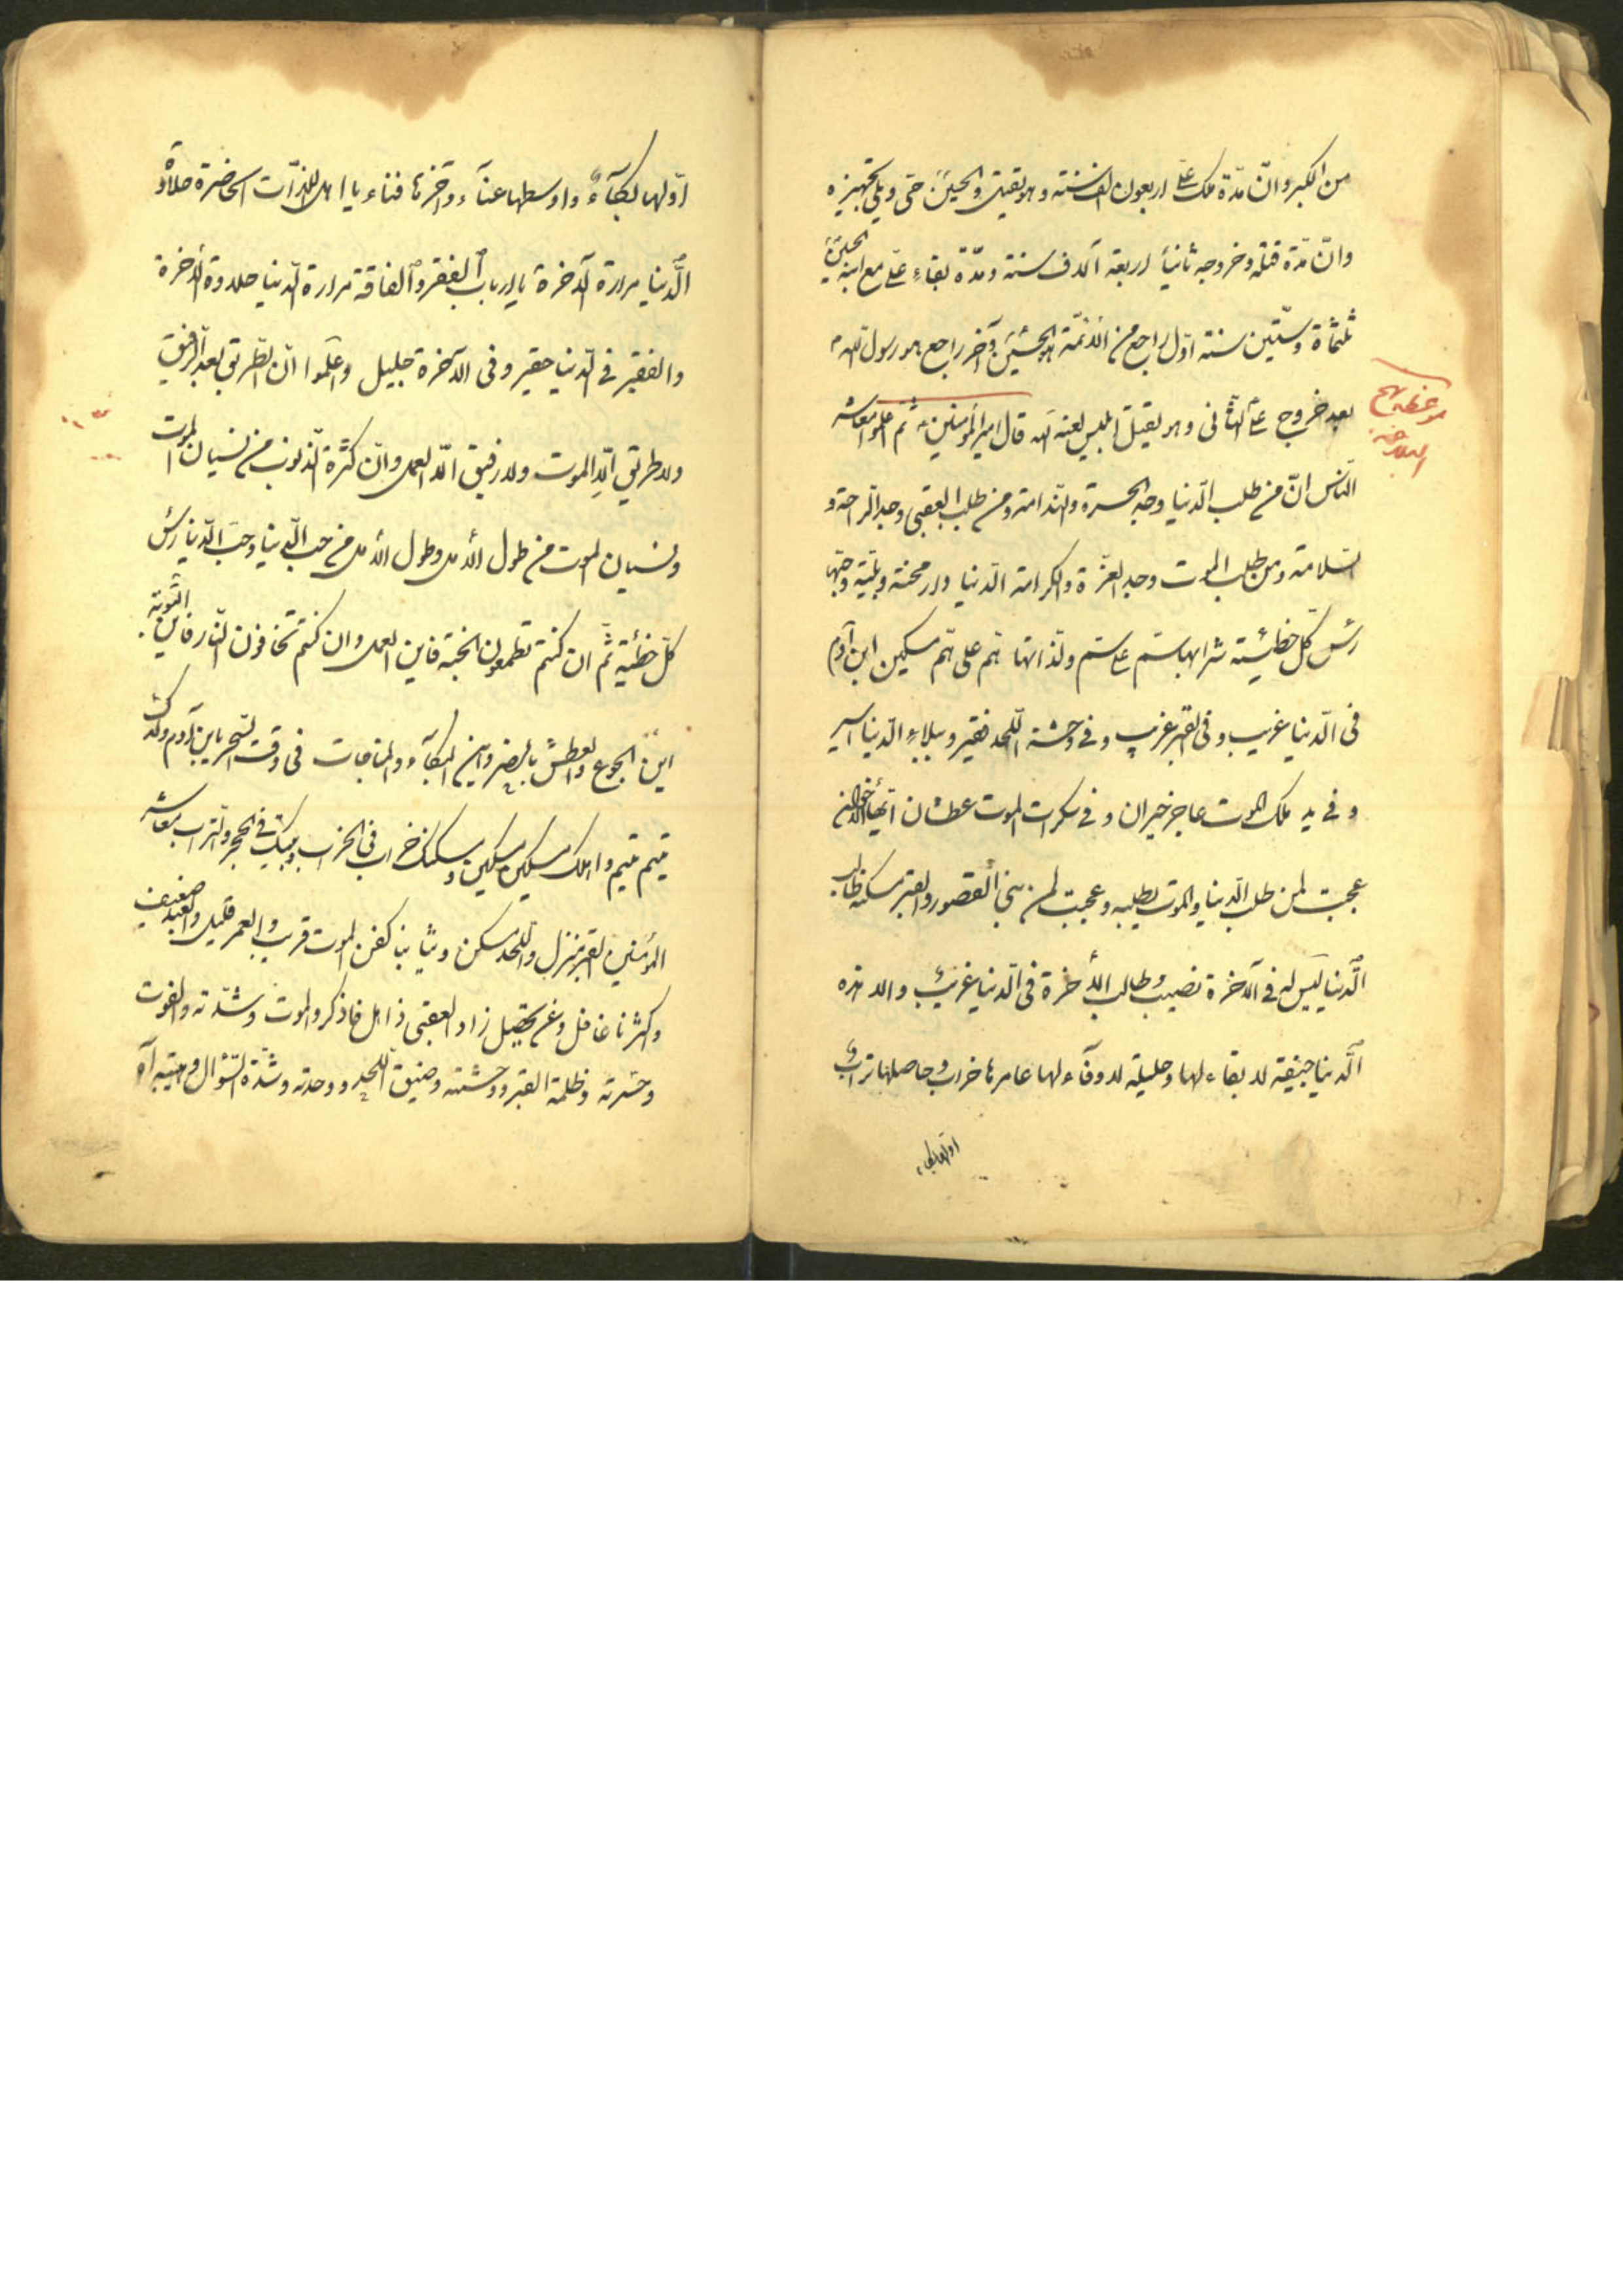 من الكبر وانّ مدّة ملك علىّ اربعون الف سنته وهو يقيت والحسين حتى ويلى تجهيزه
وانّ مدّة قتله وخروجه ثانياً اربعة آلاف سنته ومدّة بقاء علىّ مع ابنه الحسين
ثلثمأة وستّين سنته اوّل راجع من الائمّة الحسين وآخر راجع هو رسول اللّه
موعظه
البلاغة
بعد خروج علىّ الثانى وهو يقتل ابليس لعنه اللّه قال امير المؤمنين ثم اعلموا معاشر
النّاس انّ من طلب الدّنيا وجد الحسرة والنّدامة ومن طلب العقبى وجد الرّاحة و
السّلامة ومن طلب الموت وجد العزّة والكرامة الدّنيا دار محنة وبليّة وحبّها
رأس كلّ خطيئته شرابها سمّ على سمّ ولذّاتها همّ على همّ مسكين ابن آدم
فى الدّنيا غريب وفى القبر غريب وفى وحشة اللّحد فقير وببلاء الدّنيا اسير
وفى يد ملك الموت عاجز حيران وفى سكرات الموت عطشان ايّها الاخوان
عجبت لمن طلب الدّنيا والموت يطلبه وعجبت لمن بنى القصور والقبر مسكنه طالب
الدّنيا ليس له فى الآخرة نصيب وطالب الآخرة فى الدّنيا غريب والا هذه
الدّنيا جيفة لا بقاء لها وحليلة لا وفآء لها عامرها خراب وحاصلها تراب
اوّلها بكاء
اوّلها بكآءٌ واوسطها عنآء وآخرها فناء يا اهل اللذّات الحاضرة حلاوة
الدّنيا مرارة الآخرة يا ارباب الفقر والفاقة مرارة الدّنيا حلاوة الآخرة
والفقير فى الدّنيا حقير وفى الآخرة جليل واعلموا انّ الطّريق بعد الرّفيق
ولا طريق الّا الموت ولا رفيق الّا العمل وانّ كثرة الذّنوب من نسيان الموت
ونسيان الموت من طول الأمل وطول الأمل من حبّ الدّنيا وحبّ الدّنيا رأس
كلّ خطيئة ثمّ ان كنتم تطمعون الجنّة فاين العمل وان كنتم تخافون النّار فاين التّوبة
اين الجوع والعطش بالصبر واين البكآء والمناجات فى وقت السّحر يابن آدم ولدك
يتيم يتيم واهلك مسكين مسكين ومسكنك خراب فى الخراب وبيتك فى الحجر والتّراب معاشر
المؤمنين القبر منزل واللّحد مسكن وثيابنا كفن الموت قريب والعمر قليل والعبد ضعيف
واكثرنا غافل وعن تحصيل زاد العقبى ذاهل فاذكروا الموت وشدّته والفوت
وحسرته وظلمة القبر ووحشته وضيق اللّحد ووحدته وشدّة السّؤال وهيبته آه